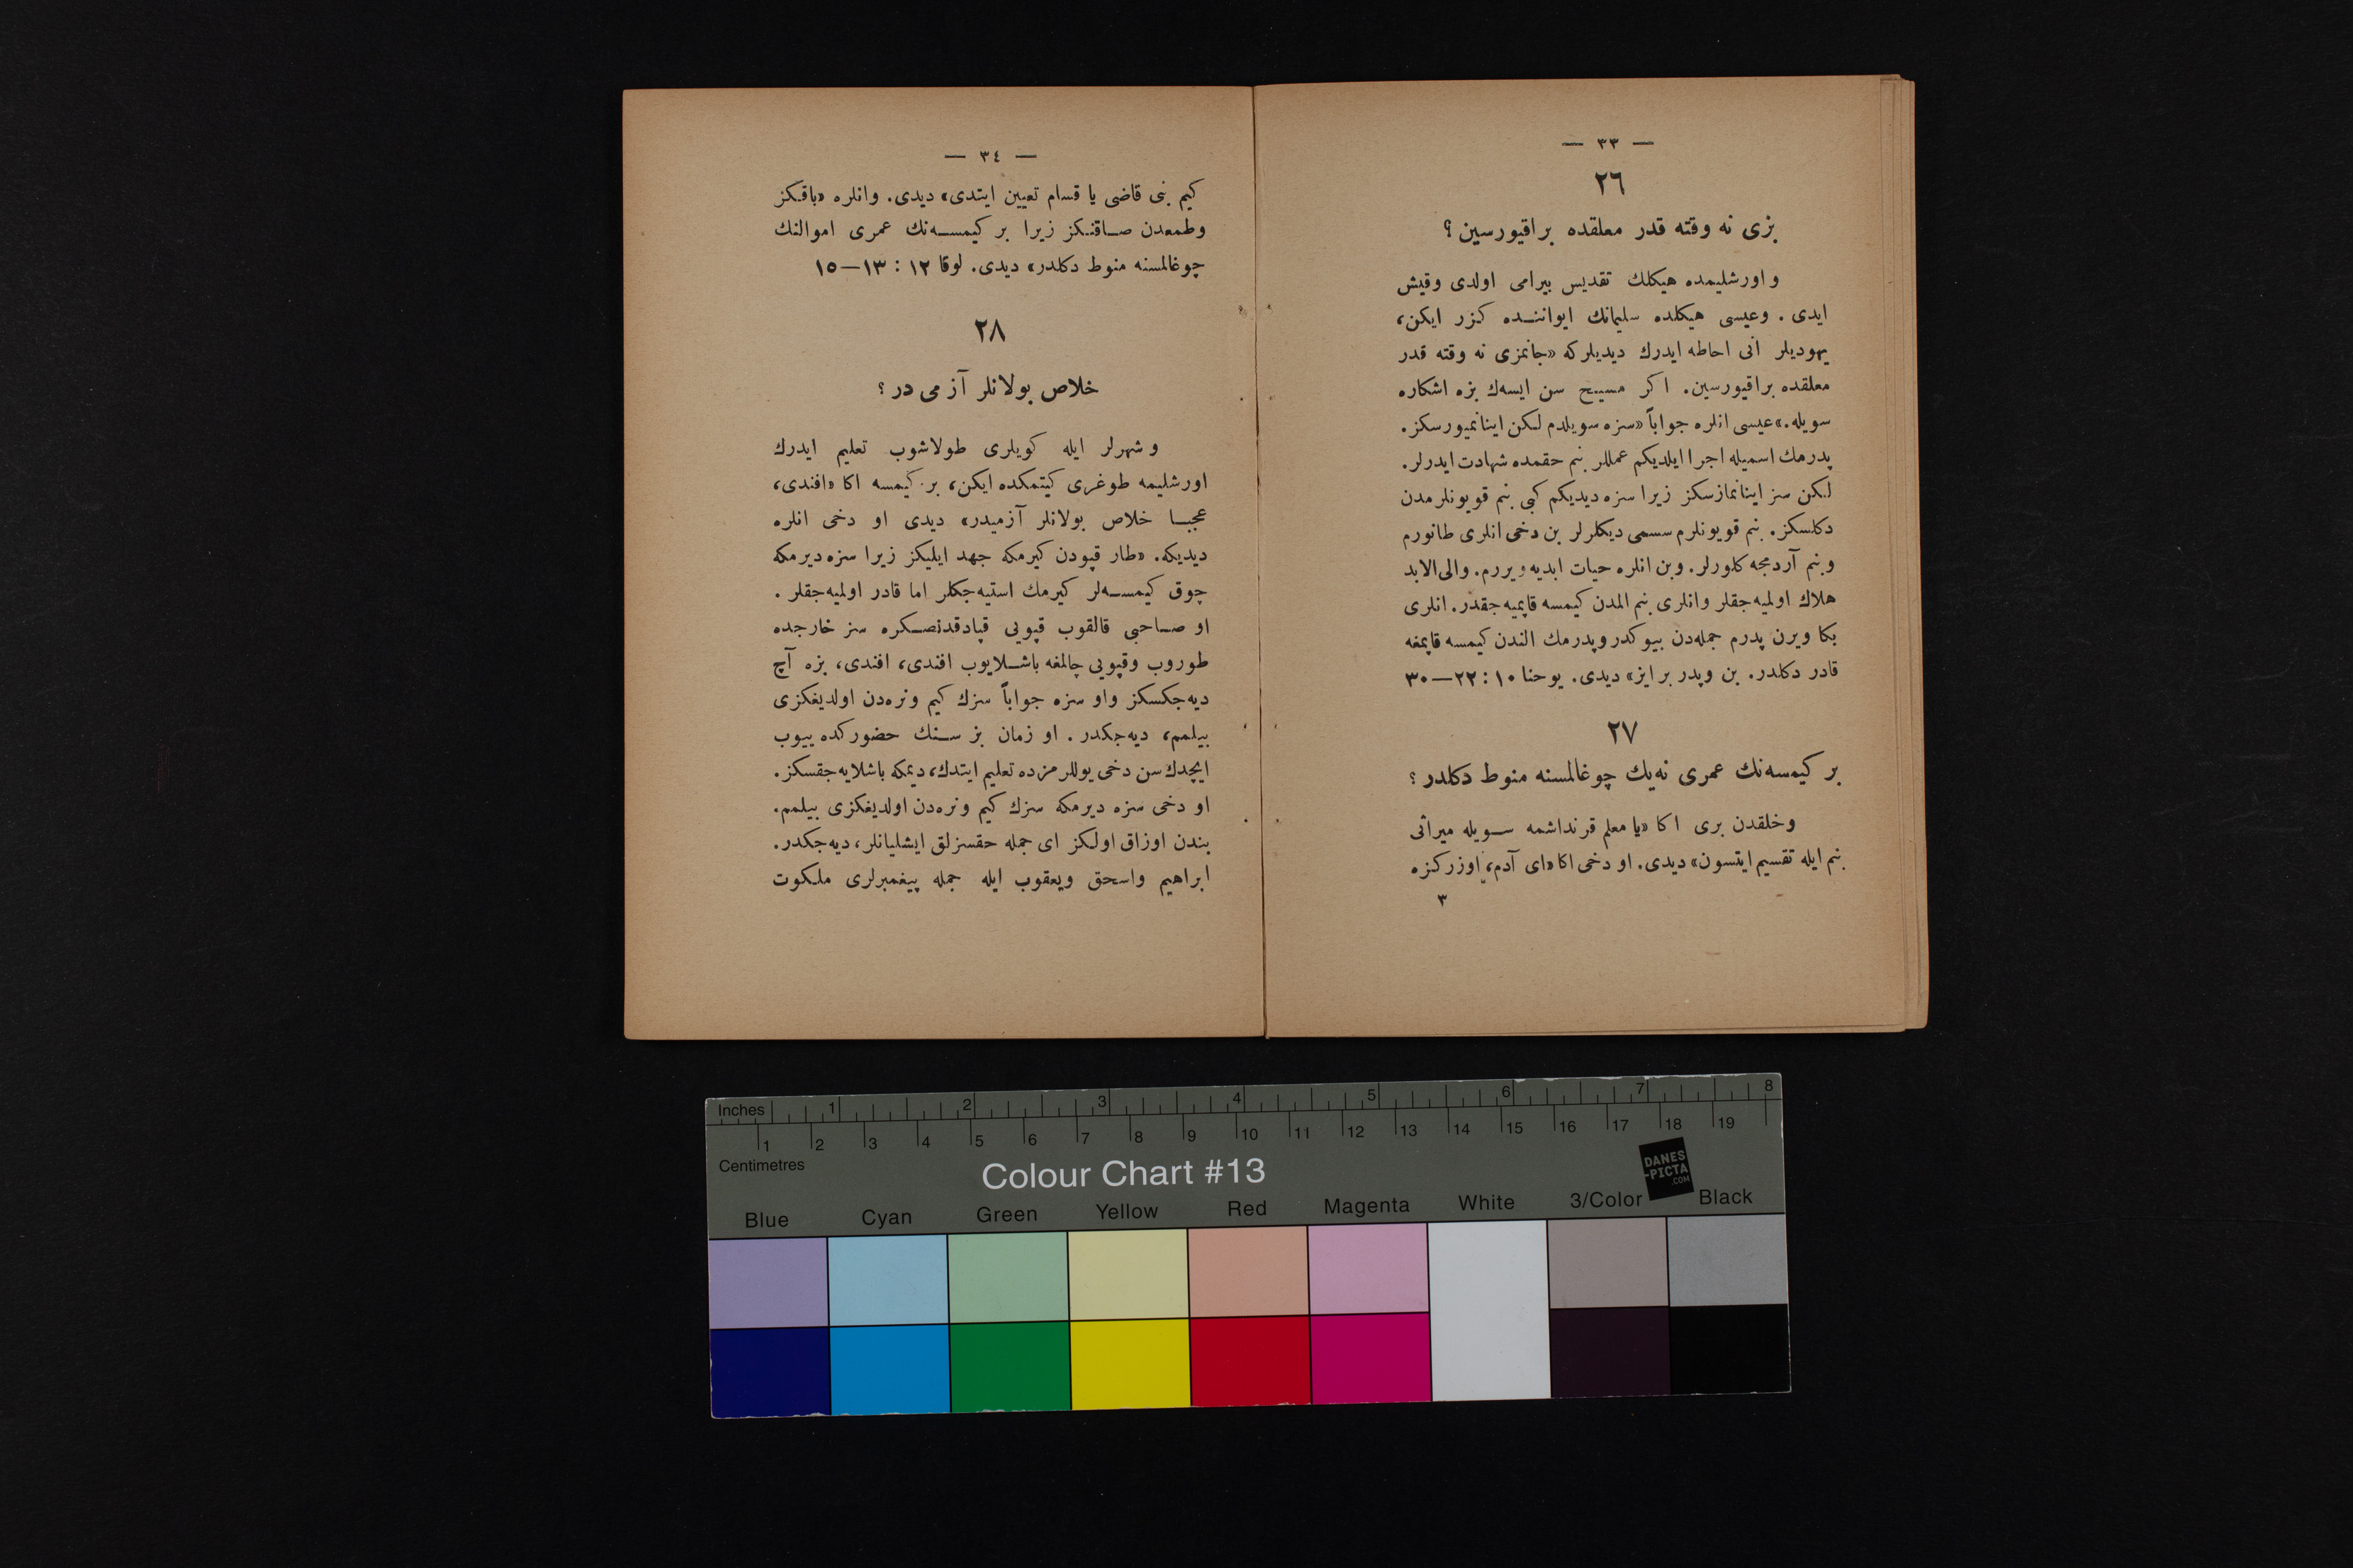 — ٣٣ —
٢٦
بزی نه وقته قدر معلقده براقیورسین ؟
و اورشلیمده هیكلك تقدیس بیرامی اولدی وقیش
ایدی . وعیسی هیكلده سلیمانك ایواننده كزر ایكن،
یهودیلر انی احاطه ایدرك دیدیلركه «جانمزی نه وقته قدر
معلقده براقیورسین. اكر مسیح سن ایسه‌ك بزه اشكاره
سویله.» عیسی انلره جواباً «سزه سویلدم لكن اینانمیورسكز.
پدرمك اسمیله اجرا ایلدیكم عمللر بنم حقمده شهادت ایدرلر.
لكن سز اینانمازسكز زیرا سزه دیدیكم كبی بنم قویونلرمدن
دكلسكز. بنم قویونلرم سسمی دیكلرلر بن دخی انلری طانورم
وبنم آردمجه كلورلر. وبن انلره حیات ابدیه ویررم. والی‌الابد
هلاك اولمیه‌جقلر وانلری بنم المدن كیمسه قاپمیه‌جقدر. انلری
بكا ویرن پدرم جمله‌دن بیوكدر وپدرمك الندن كیمسه قاپمغه
قادر دكلدر. بن وپدر بر ایز» دیدی. یوحنا ١٠ : ٢٢—٣٠
٢٧
بر كیمسه‌نك عمری نه‌یك چوغالمسنه منوط دكلدر ؟
وخلقدن بری اكا «یا معلم قرنداشمه سویله میراثی
بنم ایله تقسیم ایتسون» دیدی. او دخی اكا «ای آدم، اوزركزه
٣
— ٣٤ —
كیم بنی قاضی یا قسام تعیین ایتدی» دیدی. وانلره «باقكز
وطمعدن صاقنكز زیرا بر كیمسه‌نك عمری اموالنك
چوغالمسنه منوط دكلدر» دیدی. لوقا ١٢ : ١٣—١٥
٢٨
خلاص بولانلر آز می در ؟
و شهرلر ایله كویلری طولاشوب تعلیم ایدرك
اورشلیمه طوغری كیتمكده ایكن، بر كیمسه اكا «افندی،
عجبا خلاص بولانلر آزمیدر» دیدی او دخی انلره
دیدیكه. «طار قپودن كیرمكه جهد ایلیكز زیرا سزه دیرمكه
چوق كیمسه‌لر كیرمك استیه‌جكلر اما قادر اولمیه‌جقلر .
او صاحبی قالقوب قپویی قپادقدنصكره سز خارجده
طوروب وقپویی چالمغه باشلایوب افندی، افندی، بزه آچ
دیه‌جكسكز واو سزه جواباً سزك كیم ونره‌دن اولدیغكزی
بیلمم، دیه‌جكدر . او زمان بز سنك حضوركده ییوب
ایچدك سن دخی یوللرمزده تعلیم ایتدك، دیمكه باشلایه‌جقسكز.
او دخی سزه دیرمكه سزك كیم ونره‌دن اولدیغكزی بیلمم.
بندن اوزاق اولكز ای جمله حقسزلق ایشلیانلر، دیه‌جكدر.
ابراهیم واسحق ویعقوب ایله جمله پیغمبرلری ملكوت
Inches 1 2 3 4 5 6 7 8
1 2 3 4 5 6 7 8 9 10 11 12 13 14 15 16 17 18 19
Centimetres
Colour Chart #13
DANES
-PICTA
.COM
Blue Cyan Green Yellow Red Magenta White 3/Color Black